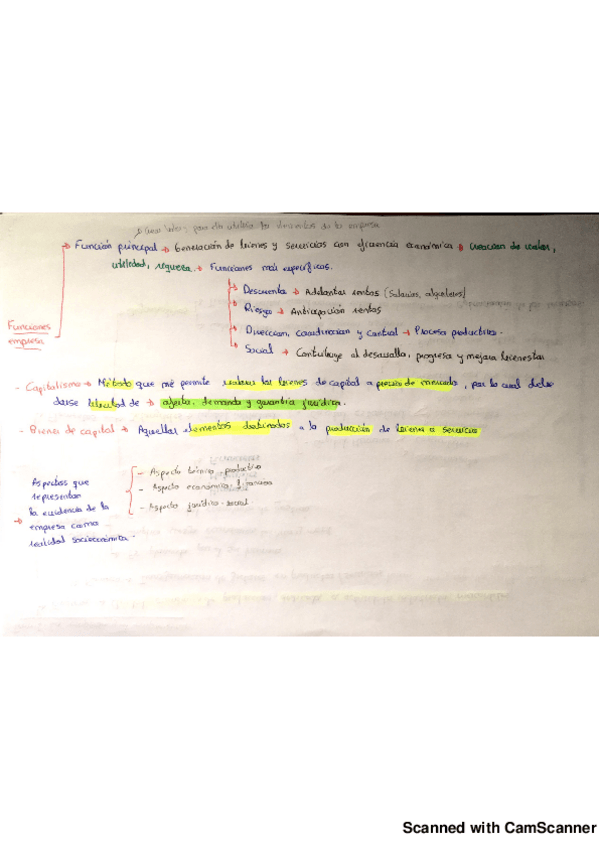 Crear valor, para ello utiliza los elementos de la empresa
Funciones empresa
→ Función principal → Generación de bienes y servicios con eficiencia económica → Creación de valor,
utilidad, riqueza. → Funciones más específicas.
→ Descuenta → Adelantar rentas (Salarios, alquileres)
→ Riesgo → Anticipación rentas
→ Dirección, coordinación y control → Proceso productivo.
→ Social → Contribuye al desarrollo, progreso y mejora bienestar
- Capitalismo → Método que me permite valorar los bienes de capital a precios de mercado, por lo cual debe
darse libertad de → oferta, demanda y garantía jurídica.
- Bienes de capital → Aquellos elementos destinados a la producción de bienes o servicios
→ Aspectos que
representan
la evidencia de la
empresa como
realidad socioeconómica.
- Aspecto técnico-productivo
- Aspecto económico-financiero
- Aspecto jurídico-social
Scanned with CamScanner